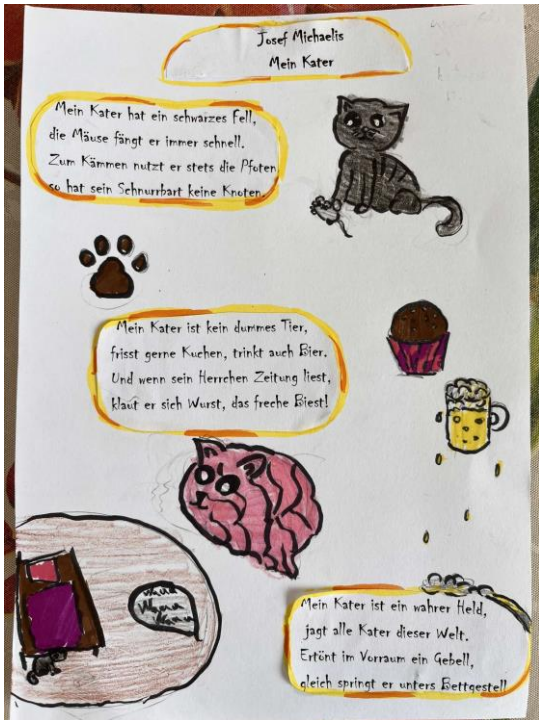 Josef Michaelis
Mein Kater
Mein Kater hat ein schwarzes Fell,
die Mäuse fängt er immer schnell.
Zum Kämmen nutzt er stets die Pfoten
so hat sein Schnurrbart keine Knoten.
Mein Kater ist kein dummes Tier,
frisst gerne Kuchen, trinkt auch Bier.
Und wenn sein Herrchen Zeitung liest,
klaut er sich Wurst, das freche Biest!
Wauu
Wauu
Wauu
Mein Kater ist ein wahrer Held,
jagt alle Kater dieser Welt.
Ertönt im Vorraum ein Gebell,
gleich springt er unters Bettgestell